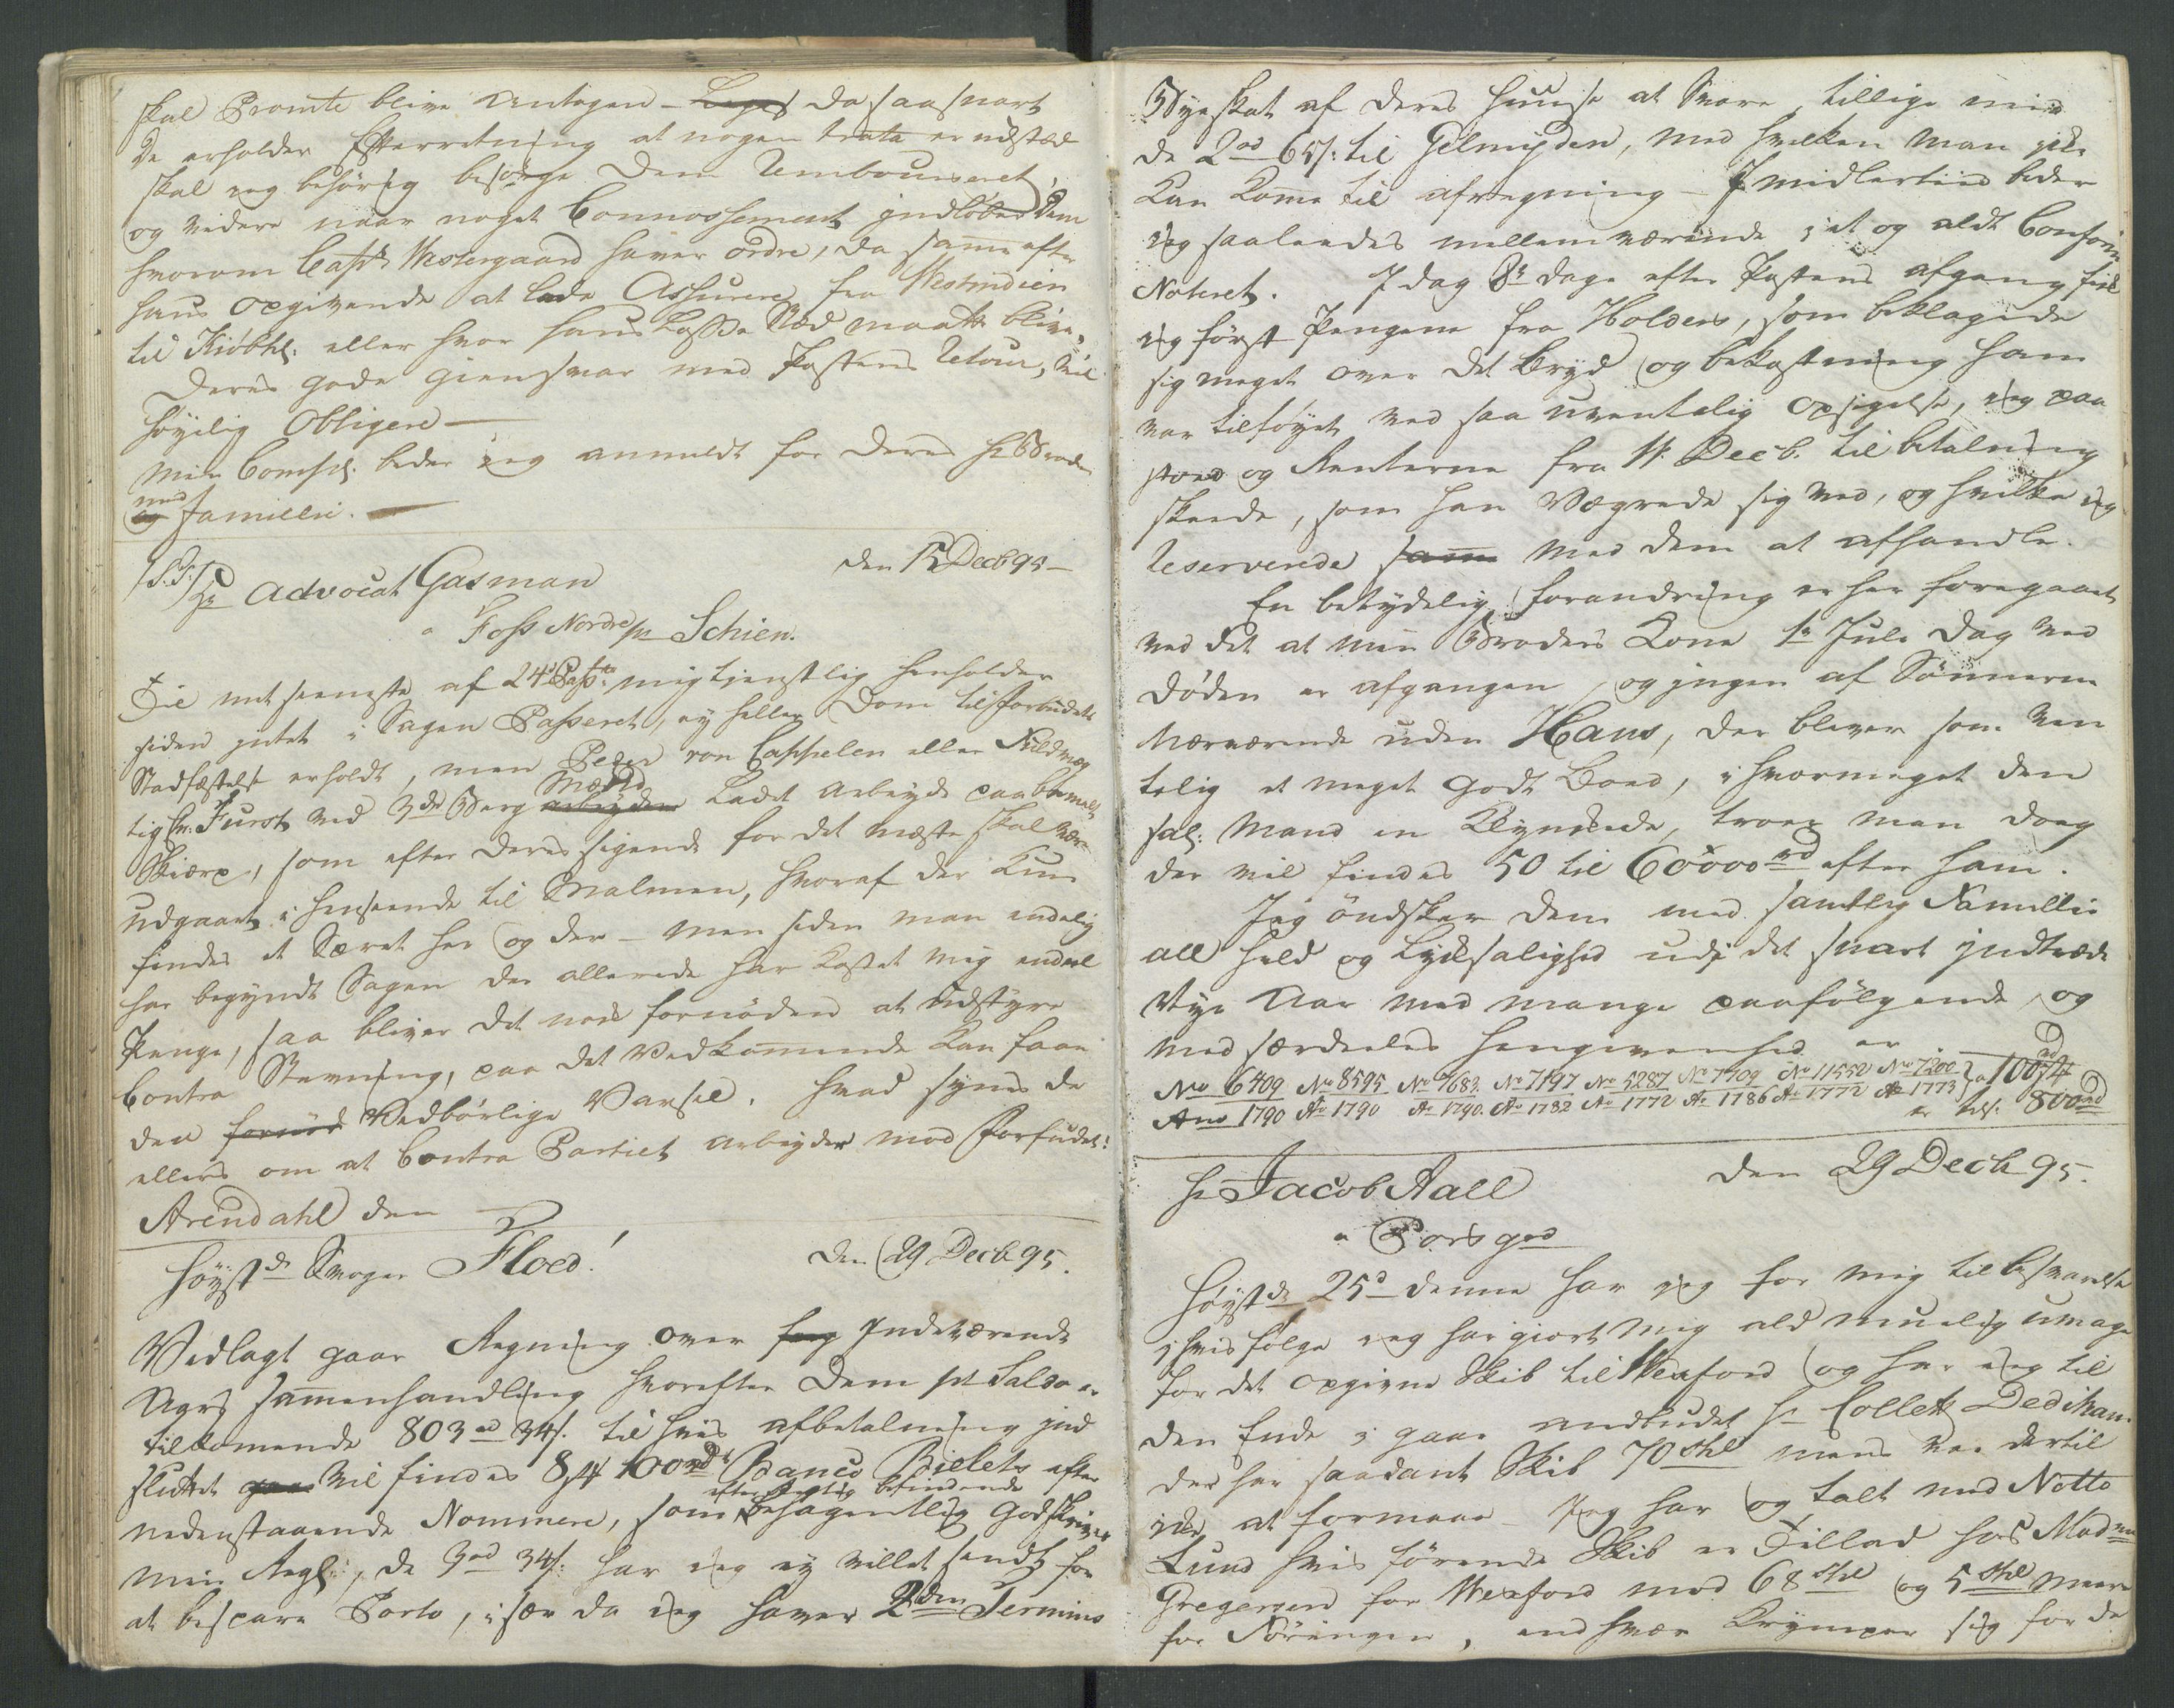 skal Promte blive Antagen – da saasnart
De erholder Efterretning at nogen trata er udstæd
skal ieg behörig besörge Dem Rembourseret,
og videre naar noget Connossement indlöber Dem
hvorom Capt: Westergaard haver ordre, da samme efter
hans opgivende at lade Assurere fra Westindien
til Kiöbh: eller hvor hans Losse Stæd maatte blive,
Deres gode Giensvar med Postens Retour, vil
höylig Obligere –
Min Complt: beder ieg anmeldt for Deres Hr Broder
med Familie. –
/S:T:/ Den 15 Decb 95 –
Hr Advocat Gasman
a Foss Nordre pr Schien.
Til mit seeneste af 24d Pass: mig tienstlig henholder
siden intet i Sagen Passeret, ey heller Dom til Forbudets
Stadfæstelse erholdt, men Peder von Cappelen eller Fuldmæg
tig Hr: Furst med 3de Berg Mænd Ladet Arbeyde paa bemelte
Skiærp, som efter Deres sigende for det meste skal være
udgaaet i henseende til Malmen, hvoraf der Kun
findes et Særet her og der – men siden man endelig
har begyndt Sagen der allerede har kostet mig endeel
Penge, saa bliver det nok fornöden at udstyre
Contra Stevning, paa det Vedkommende Kan faae
den Vedbörlige Varsel. Hvad synes De
ellers om at Contra Partiet Arbeyder mod Forbudet!
Arendahl den –
Höystd: Svoger Floed! Den 29 Decb 95.
Vedlagt gaar Regning over Indeværende
Aars samenhandling hvorefter Dem pr Saldo er
tilkomende 803 rd 34 s. til hvis afbetalning ind
sluttet vil findes 8 st 100 rd Banco Zielets efter
efter rigtig befindende
nedenstaaende Nommere, som behagentlig Godskriver
min Regl:, de 3 rd 34 s. har ieg ey villet sendt for
at bespare Porto, især da ieg haver 2den Termins
Bye skat af Deres Huuse at svare, tillige med
de 2 rd 65 s: til Gelmeyden, med hvilken man ikke
Kan Kome til afregning – Imidlertiid beder
ieg saaledes mellemværende j et og aldt Conform
Noteret. I dag 8te dage efter Postens afgang fik
ieg först Pengene fra Holders, som beklagede
sig meget over det Bryd og bekostning ham
var tilföyet ved saa uventelig opsigelse, ieg paa
stoed og Renterne fra 11 Decb. til betalning
skeede, som han Vægrede sig ved, og hvilke ieg
Reserverede med Dem at afhandle.
En betydelig forandring er her foregaaet
ved det at min Broders Kone 1te Jule Dag ved
Döden er afgangen, og ingen af Sönnerne
Nærværende uden Hans, der bliver som ven
telig et meget godt Boed, i hvormeget den
sal: Mand en Klynkede, troer man dog
der vil findes 50 til 60000 rd efter ham.
Jeg öndsker Dem med samtlig Familie
all Held og Lyksalighed udi det snart indtræde
Nye Aar med mange paafölgende, og
med særdeeles hengivenhed er
No 6409 No 8595 No 7682 No 7197 No 5287 No 7709 No 11552 No 7200 } a 100 rd
Ano 1790 Ao 1790 Ao 1790. Ao 1782 Ao 1772 Ao 1786 Ao 1772 Ao 1773 er tils: 800 rd
Hr Jacob Aall Den 29 Decb 95.
a Porsgrd
Höystd: 25d denne har ieg for mig til besvarelse
i hvis fölge ieg har giort mig ald muelig umage
for det opgivne Skib til Wexford og har ieg til
den Ende i gaar anbudet Hr Collett Dedikam
der har saadant Skib 70 shl mens var dertil
ikke at formaae – Jeg har og talt med Notto
Lund hvis förende Skib er Tillad hos Mad:
Gregersen for Wexford med 68 shl og 5 shl meere
for Föringen, end hver Krymper sig for de